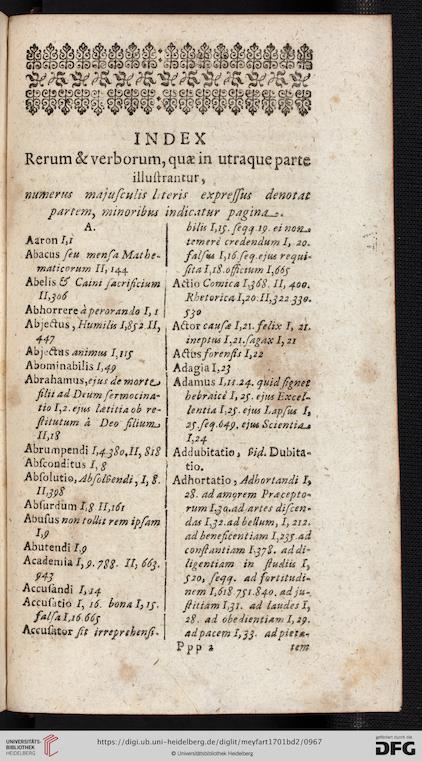 INDEX
Rerum & verborum, quæ in utraque parte
illuſtrantur,
numerus majuſculis literis expreſſus denotat
partem, minoribus indicatur pagina.
A.
Aaron I,1
Abacus ſeu menſa Mathe-
maticorum II, 144
Abelis & Caini ſacrificium
II,306
Abhorrere à perorando I, 1
Abjectus, Humilis I,852 II,
447
Abjectus animus I,115
Abominabilis I,49
Abrahamus, ejus de morte
filii ad Deum ſermocina-
tio I,2. ejus lætitia ob re-
ſtitutum à Deo filium
II,18
Abrumpendi I,4.380,II, 818
Abſconditus I, 8
Abſolutio, Abſolvendi, I, 8.
II,398
Abſurdum I,8 II,161
Abuſus non tollit rem ipſam
I,9
Abutendi I,9
Academia I, 9. 788. II, 663.
943
Accuſandi I,14
Accuſatio I, 16. bona I, 15.
falſa I,16.665
Accuſator ſit irreprehenſi-
bilis I,15. ſeqq 19. ei non
temerè credendum I, 20.
falſus I,16.ſeq.ejus requi-
ſita I,18.officium I,665
Actio Comica I,368. II, 400.
Rhetorica I,20.II,322.330.
530
Actor cauſæ I,21. felix I, 21.
ineptus I,21.ſagax I, 21
Actus forenſis I,22
Adagia I,23
Adamus I,11.24. quid ſignet
hebraicè I, 25. ejus Excel-
lentia I,25. ejus Lapſus I,
25.ſeq.649. ejus Scientia
I,24
Addubitatio, vid. Dubita-
tio.
Adhortatio, Adhortandi I,
28. ad amorem Præcepto-
rum I,30.ad artes diſcen-
das I,32.ad bellum, I, 212.
ad beneficentiam I,235.ad
conſtantiam I.378. ad di-
ligentiam in ſtudiis I,
520, ſeqq. ad fortitudi-
nem I,618 751.840. ad ju-
ſtitiam I,31. ad laudes I,
28. ad obedientiam I, 29.
ad pacem I, 33. ad pieta-
Ppp 2 tem
UNIVERSITÄTS-
BIBLIOTHEK
HEIDELBERG
https://digi.ub.uni-heidelberg.de/diglit/meyfart1701bd2/0967
© Universitätsbibliothek Heidelberg
gefördert durch die
DFG